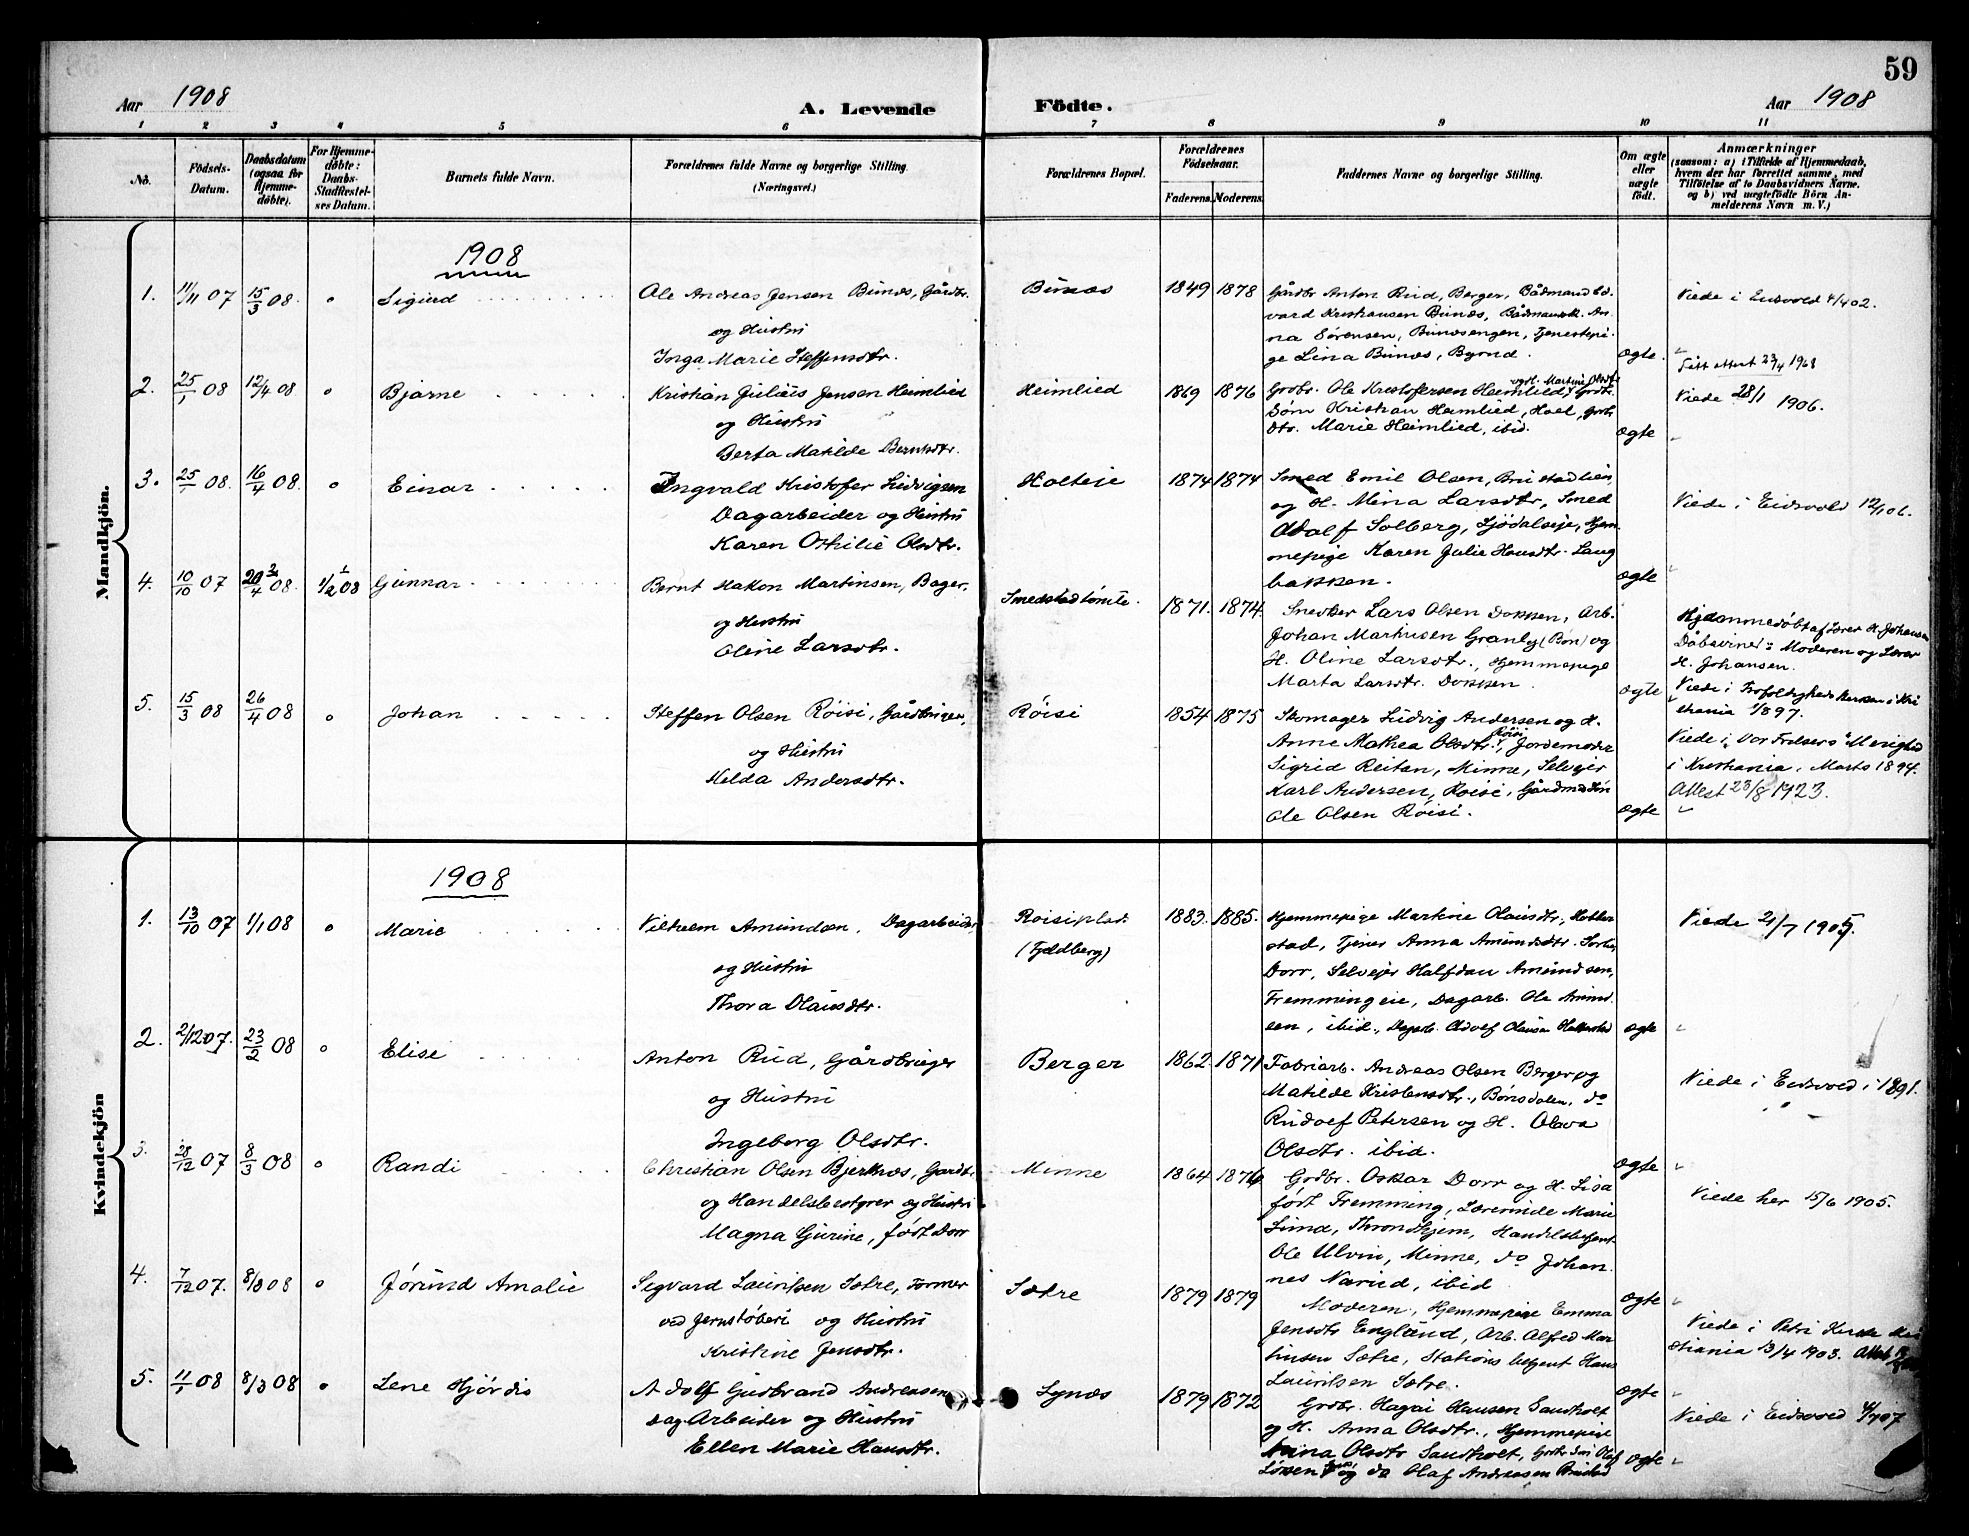 59
Aar 1908
A. Levende Födte.
Aar 1908
1 2 3 4 5 6 7 8 9 10 11
No.
Födsels-
Datum.
Daabsdatum
(ogsaa for
Hjemme-
döbte).
For Hjemme-
döbte:
Daabs-
Stadfæstel-
ses Datum.
Barnets fulde Navn.
Forældrenes fulde Navne og borgerlige Stilling.
(Næringsvei.)
Forældrenes Bopæl.
Forældrenes
Födselsaar.
Faderens. Moderens.
Faddernes Navne og borgerlige Stilling.
Om ægte
eller
uægte
födt.
Anmærkninger
(saasom: a) i Tilfælde af Hjemmedaab,
hvem der har forrettet samme, med
Tilföielse af to Daabsvidners Navne,
og b) ved uægtefödte Börn An-
melderens Navn m. V.)
Mandkjön.
1908
1. 11/11 07 15/3 08. " Sigurd
Ole Andreas Jensen Bunæs, Gårdbr.
og Hustru
Inga Marie Steffensdtr.
Bunæs
1849 1878
Gårdbr Anton Rud, Berger, Bådmand Ed-
vard Kristiansen Bunæs, Bådmandsk. An-
na Sørensen, Bunæsengen, Tjenestepi-
ge Lina Bunæs, Byrud.
ægte.
Viede i Eidsvold 4/4 02.
Fått attest 23/4 1968
2. 25/1 08 12/4 08 " Bjarne
Kristian Julius Jensen Heimlied
og Hustru
Berta Matilde Berntsdtr.
Heimlied
1869 1876
og H. Martine Olsdtr
Grdbr. Ole Kristofersen Heimlied, Grdbr.
Søn Kristian Heimlied, Hoel, Grdbr
dtr. Marie Heimlied, ibid.
ægte
Viede 28/1 1906.
3. 25/1 08. 16/4 08. " Einar
Ingvald Kristofer Ludvigsen
Dagarbeider og Hustru
Karen Othilie Olsdtr.
Holteie
1874 1874
Smed Emil Olsen, Bustadlien
og H. Mina Larsdtr, Smed
Adolf Solberg, Sjødalseje, Hjem-
mepige Karen Julie Hansdtr. Laug-
bakken.
ægte
Viede i Eidsvold 12/1 06.
4. 10/10 07 20/4 08. 1/2 08 Gunnar
Bernt Hakon Martinsen, Bager,
og Hustru
Oline Larsdtr.
Smedstadtomte.
1871. 1874.
Snedker Lars Olsen Dokken, Arb.
Johan Martinsen Granly (Bøn) og
H. Oline Larsdtr., Hjemmepige
Marta Larsdtr. Dokken.
ægte
Hjemmedøbt af Lærer H. Johansen
Dåbsvidner: Moderen og Lærer
H. Johansen.
Viede i Trefoldighedskirken i Kri
stiania 1/1 897.
5. 15/3 08 26/4 08 " Johan
Steffen Olsen Røisi, Gårdbruger,
og Hustru
Helda Andersdtr.
Røisi
1854 1875
Skomager Ludvig Andersen og H.
Anne Mathea Olsdtr. Røisi, Jordemoder
Sigrid Reitan, Minne, Selvejer
Karl Andersen, Røisi, Gårdmandssøn
Ole Olsen Røisi.
ægte
Viede i "Vor Frelsers" Menighed
i Kristiania, Marts 1894.
Attest 23/8 1923.
Kvindekjön
1908
1. 13/10 07 1/1 08 " Marie
Vilhelm Amundsen, Dagarbeider
og Hustru
Thora Olausdtr.
Røisiplds.
(Fjeldberg)
1883. 1885.
Hjemmepige Martine Olausdtr., Holter-
stad, Tjener Anna Amundsdtr.
Dorr, Selvejer Halfdan Amundsen,
Fremmingeie, Dagarb. Ole Amund-
sen, ibid., Dagarb. Adolf Olausen
ægte
Viede 21/7 1905.
2. 2/12 07. 23/2 08 " Elise
Anton Rud, Gårdbruger
og Hustru
Ingeborg Olsdtr.
Berger
1862. 1871
Fabriarb. Andreas Olsen Berger og
Matilde Kristensdtr., Bønsdalen, do
Rudolf Petersen og H. Olava
Olsdtr. ibid.
ægte
Viede i Eidsvold i 1891.
3. 28/12 07 8/3 08 " Randi
Christian Olsen Bjerknæs, Gardbr.
og Handelsbestyrer og Hustru
Magna Gurine, født Dorr
Minne
1864 1874
Grdbr. Oskar Dorr og H. Lisa
født Fremming, Lærerinde Marie
Lund, Throndhjem, Handelsbetjent
Ole Ulvin, Minne, do Johan-
nes Narud, ibid
ægte
Viede her 15/6 1905.
4. 7/12 07. 8/3 08 " Jørund Amalie
Sigvard Lauritsen Sætre, Former
ved Jernstøberi og Hustru
Kristine Jensdtr.
Sætre
1879 1879
Moderen, Hjemmepige Emma
Jensdtr England, Arb. Alfred Mar-
tinsen Sætre, Stationsbetjent Hans
Lauritsen Sætre.
ægte
Viede i Petri Kirke Kri
stiania 13/4 1903. Attest
5. 11/1 08 8/3 08 " Lene Hjørdis
Adolf Gudbrand Andreassen
Dagarbeider og Hustru
Ellen Marie Hansdtr.
Lynæs
1879 1872
Grdbr. Hagai Hansen Sandholt
og H. Anna Olsdtr., Hjemmepige
Anna Olsdtr Sandholt, Grdbr Søn Olaf
og do Olaf Andreasen
ægte
Viede i Eidsvold 4/4 07